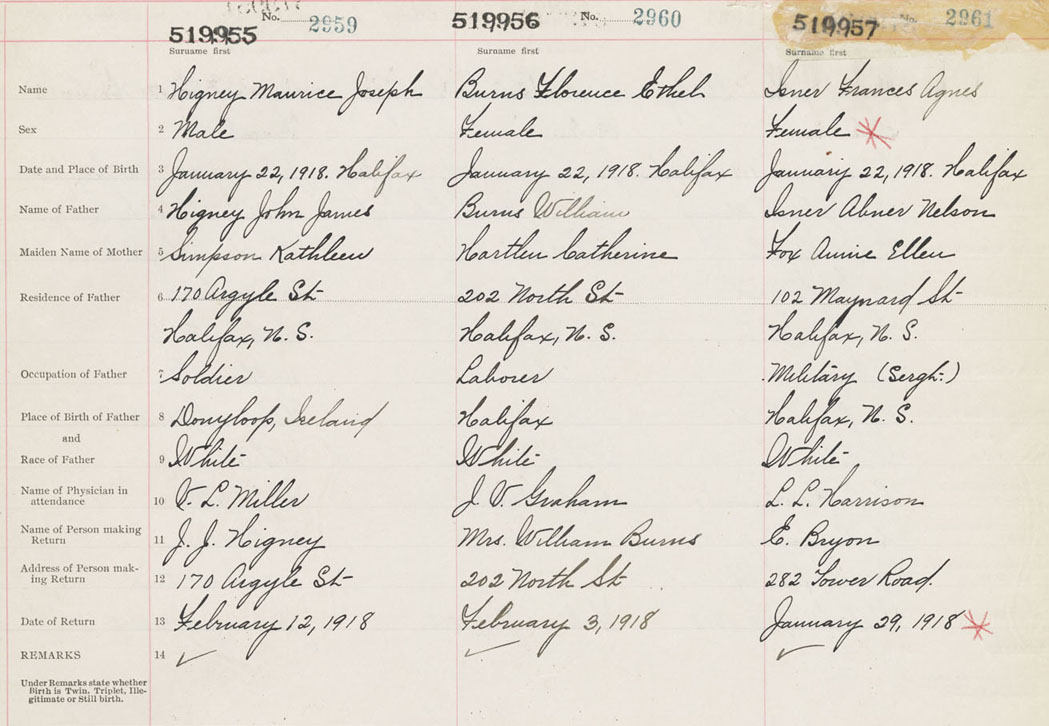 No. 2959 No. 2960 No. 2961
519955 519956 519957
Surname first Surname first Surname first
Name 1 Higney Maurice Joseph Burns Florence Ethel Isner Frances Agnes
Sex 2 Male Female Female
Date and Place of Birth 3 January 22, 1918. Halifax January 22, 1918. Halifax January 22, 1918. Halifax
Name of Father 4 Higney John James Burns William Isner Abner Nelson
Maiden Name of Mother 5 Simpson Kathleen Hartlen Catherine Fox Annie Ellen
Residence of Father 6 170 Argyle St 202 North St 102 Maynard St
Halifax, N. S. Halifax, N. S. Halifax, N. S.
Occupation of Father 7 Soldier Laborer Military (Sergt.)
Place of Birth of Father 8 Donyloop, Ireland Halifax Halifax, N. S.
and
Race of Father 9 White White White
Name of Physician in
attendance 10 V. L. Miller J. V. Graham L. L. Harrison
Name of Person making
Return 11 J. J. Higney Mrs. William Burns E. Bryon
Address of Person mak-
ing Return 12 170 Argyle St 202 North St 282 Tower Road.
Date of Return 13 February 12, 1918 February 3, 1918 January 29, 1918
REMARKS 14
Under Remarks state whether
Birth is Twin, Triplet, Ille-
gitimate or Still birth.